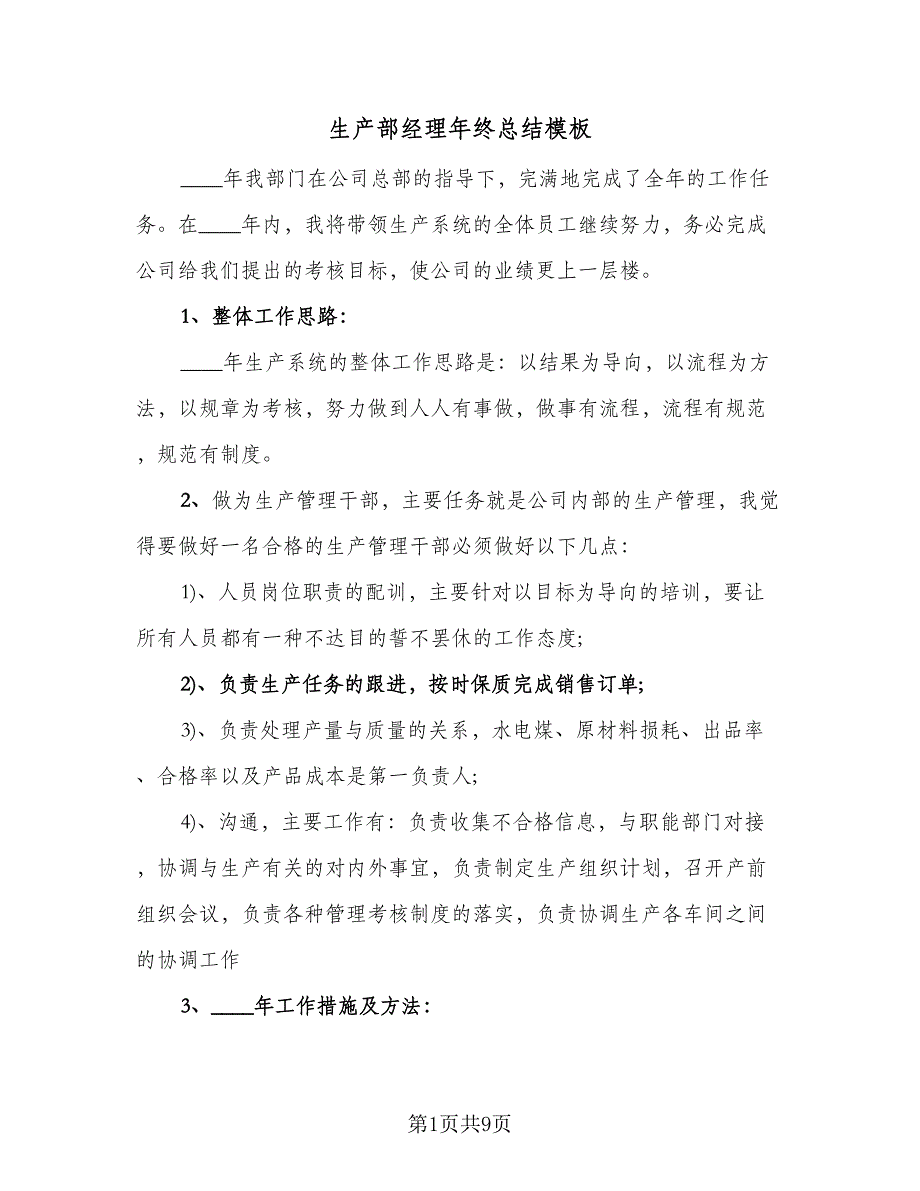 生产部经理年终总结模板
____年我部门在公司总部的指导下，完满地完成了全年的工作任
务。在____年内，我将带领生产系统的全体员工继续努力，务必完成
公司给我们提出的考核目标，使公司的业绩更上一层楼。
1、整体工作思路：
____年生产系统的整体工作思路是：以结果为导向，以流程为方
法，以规章为考核，努力做到人人有事做，做事有流程，流程有规范
，规范有制度。
2、做为生产管理干部，主要任务就是公司内部的生产管理，我觉
得要做好一名合格的生产管理干部必须做好以下几点：
1)、人员岗位职责的配训，主要针对以目标为导向的培训，要让
所有人员都有一种不达目的誓不罢休的工作态度;
2)、负责生产任务的跟进，按时保质完成销售订单;
3)、负责处理产量与质量的关系，水电煤、原材料损耗、出品率
、合格率以及产品成本是第一负责人;
4)、沟通，主要工作有：负责收集不合格信息，与职能部门对接
，协调与生产有关的对内外事宜，负责制定生产组织计划，召开产前
组织会议，负责各种管理考核制度的落实，负责协调生产各车间之间
的协调工作
3、____年工作措施及方法：
第1页共9页